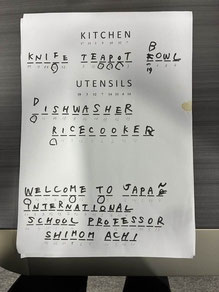 KITCHEN
KNIFE TEAPOT BOWL
19
UTENSILS
DISHWASHER
RICECOOKER
WELCOME TO JAPAN
INTERNATIONAL
SCHOOL PROFESSOR
SHIMOM ACHI